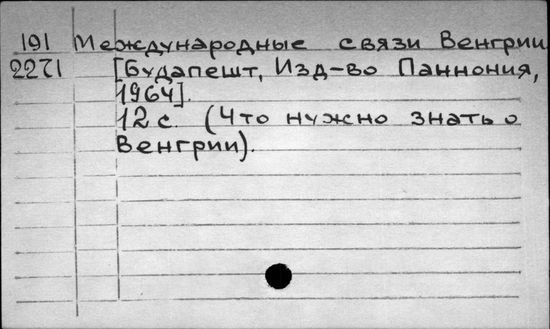 191 Международные связи Венгрии
2271 [Будапешт, Изд-во Паннония,
1964].
12 с. (Что нужно знать о
Венгрии).